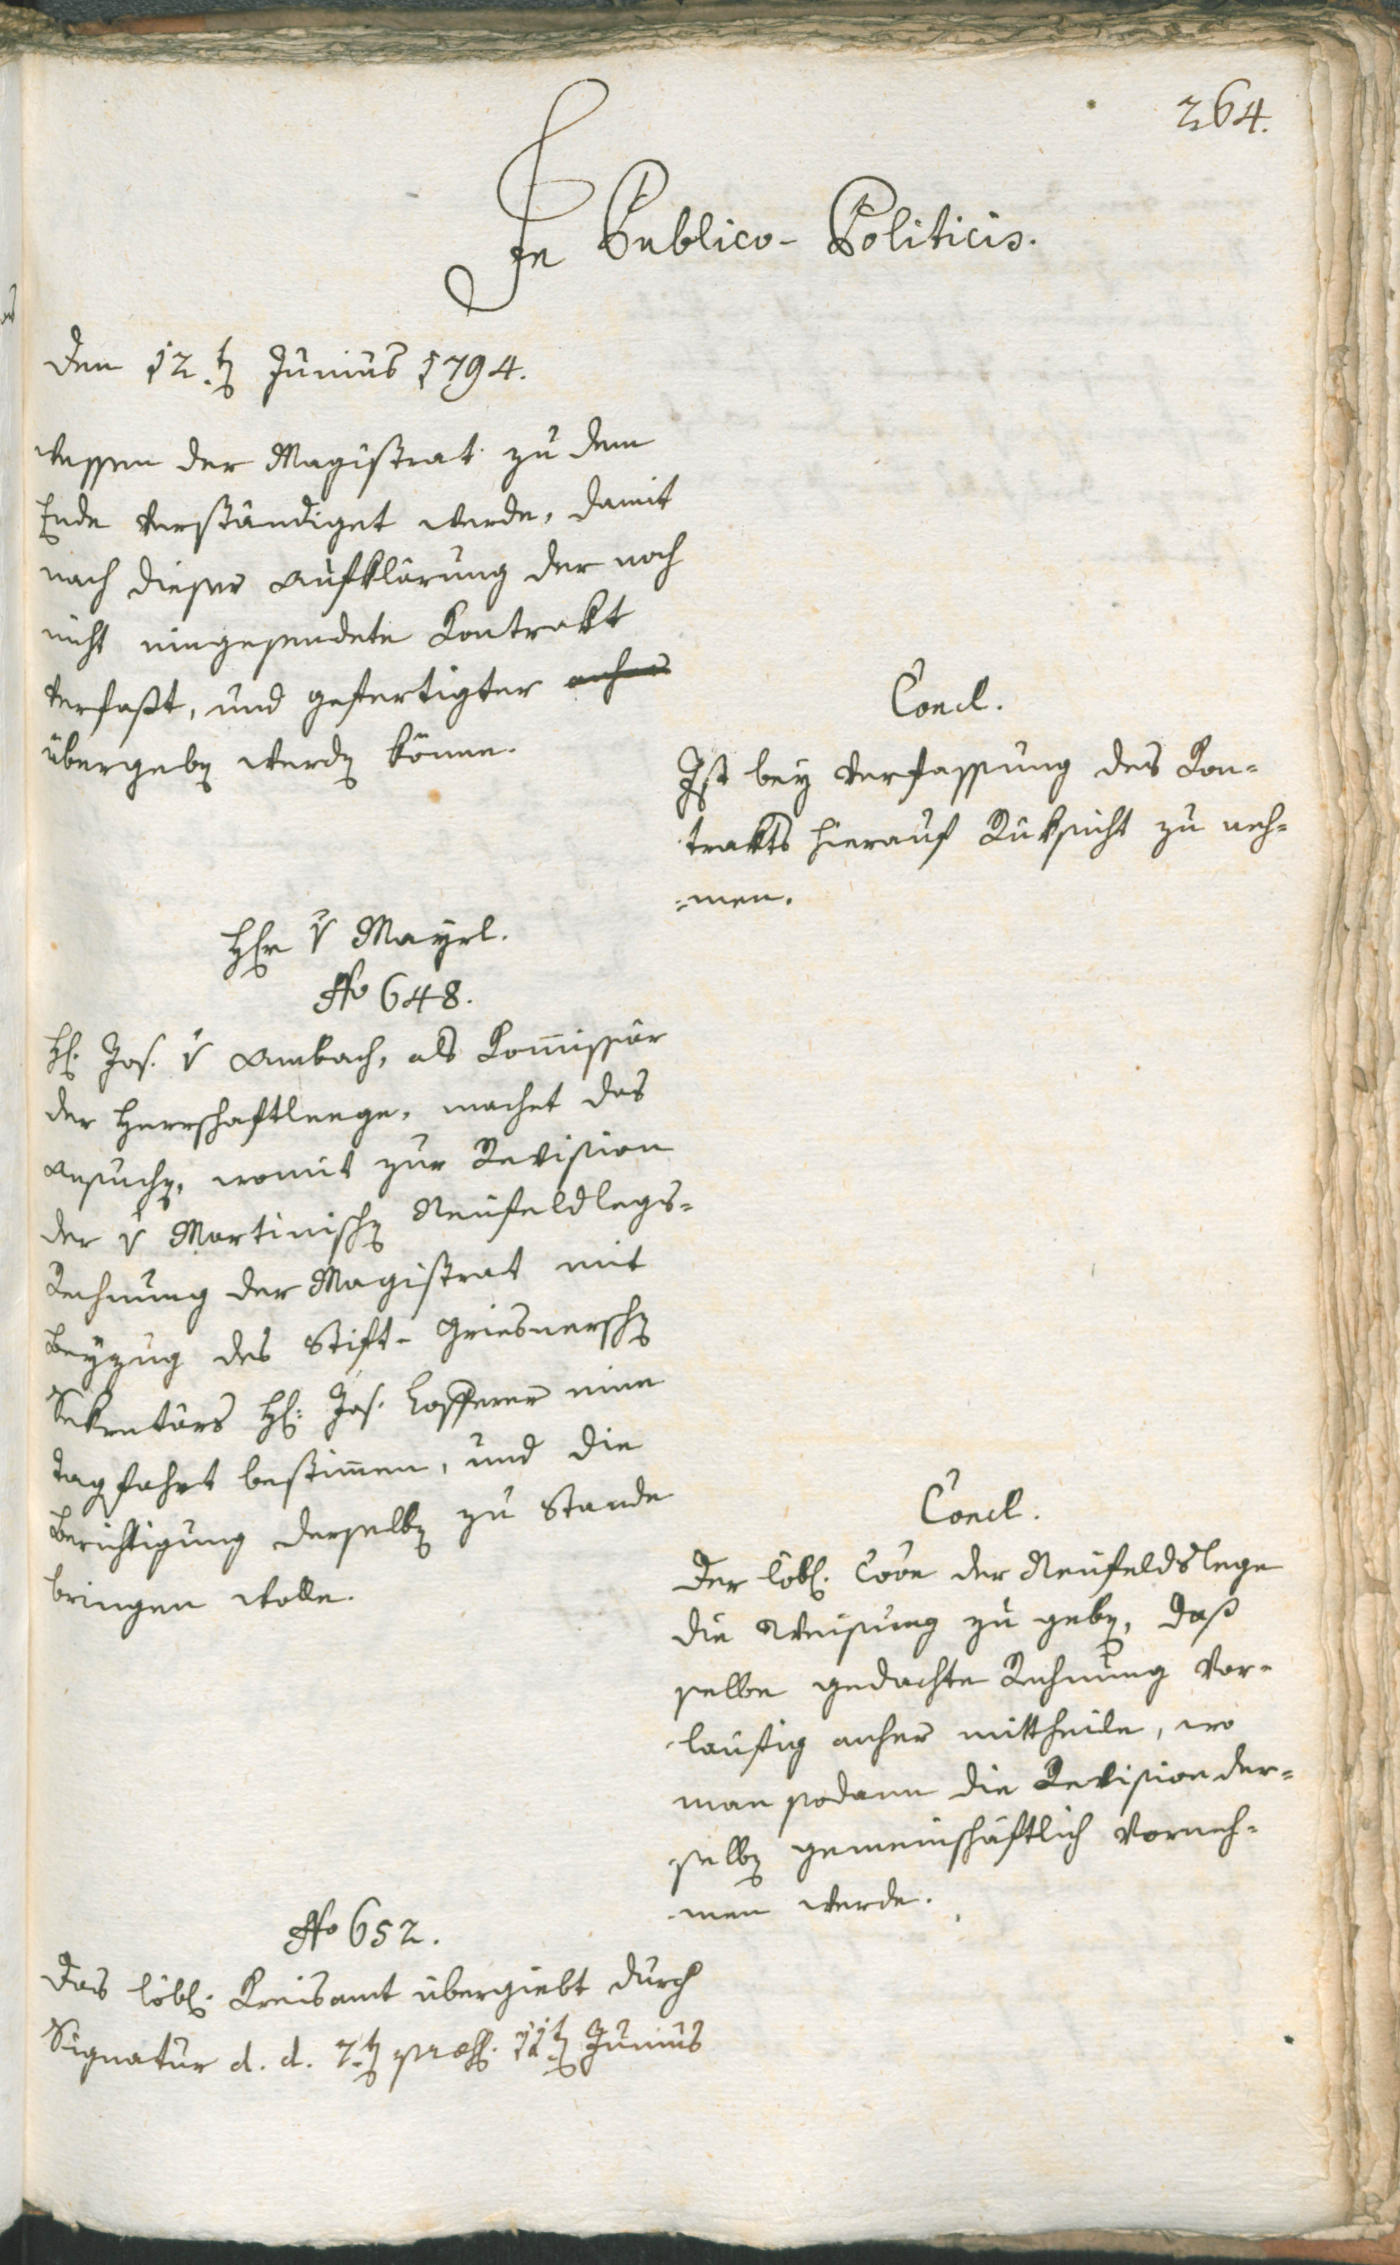 264.
In Publico-Politicis.
Den 12.t[en] Junius 1794.
dessen der Magistrat zu dem
Ende verständiget werde, damit
nach dieser Aufklärung der noch
nicht eingesendete Kontrakt
verfaßt, und gefertigter
übergeben werden könne.
Concl.
Ist bey Verfassung des Kon-
trakts hierauf Rüksicht zu neh-
-men.
Hr v Mayrl.
No 648.
H. Jos. v Ambach, als Kommissär
der Herrschaftleege, machet das
Ansuchen, womit zur Revision
der v Martinischen Neufeldlegs-
Rechnung der Magistrat mit
Beyzug des Stift-Griesnerschen
Sekretärs H: Jos. Lofferer eine
Tagfahrt bestimmen, und die
Berichtigung derselben zu Stande
bringen wolle.
Concl.
Der löbl. Coon der Neufeldslege
die Weisung zu geben, daß
selbe gedachte Rechnung vor-
läufig anher mittheile, wo
man sodann die Revision der-
selben gemeinschäftlich vorneh-
men werde.
No 652.
Das löbl. Kreisamt übergiebt durch
Signatur d. d. 7.ten præs. 11ten Junius